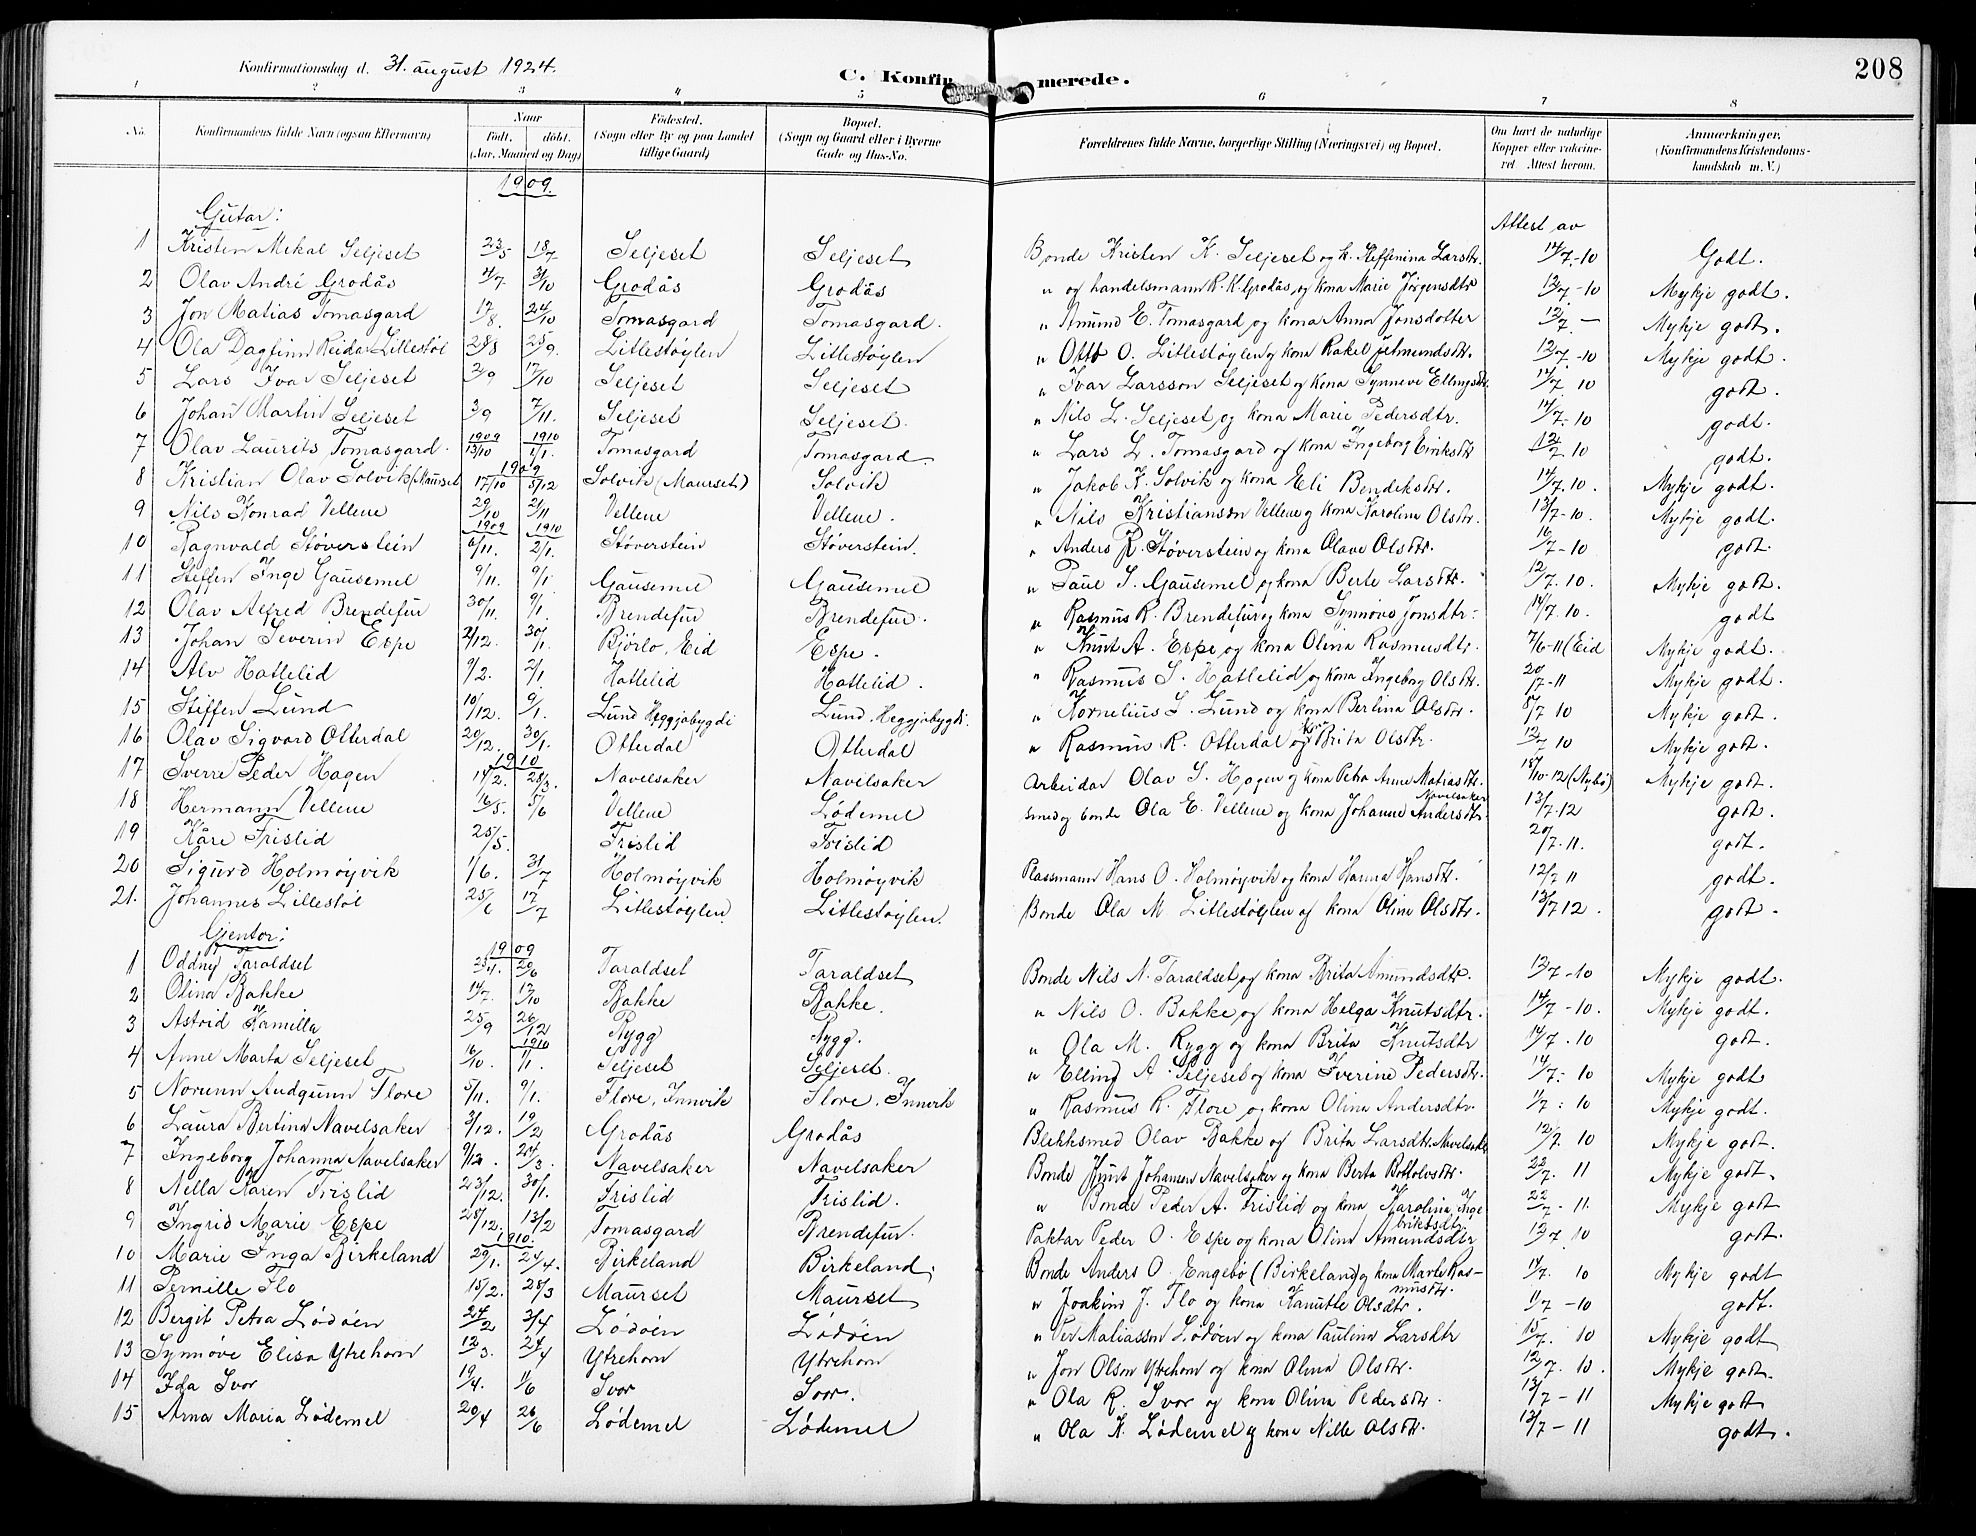 208
Konfirmationsdag d. 31. august 1924.
C. Konfirmerede.
1 2 3 4 5 6 7 8
No. Konfirmandens fulde Navn (ogsaa Efternavn) Naar født. døbt. (Aar, Maaned og Dag) Fødested. (Sogn eller By og paa Landet tillige Gaard) Bopæl. (Sogn og Gaard eller i Byerne Gade og Hus-No. Forældrenes fulde Navne, borgerlige Stilling (Næringsvei) og Bopæl. Om havt de naturlige Kopper eller vakcineret Attest herom. Anmærkninger. (Konfirmandens Kristendomskundskab m. V.)
1909.
Gutar: Attest av
1 Kristen Mikal Seljeset 23/5 18/7 Seljeset Seljeset Bonde Kristen K. Seljeset og k. Steffenina Larsdtr. 14/7-10 Godt.
2 Olav André Grodås 4/7 31/10 Grodås Grodås " og handelsmann R. K. Grodås og kona Marie Jørgensdtr 12/7-10 Mykje godt.
3 Jon Matias Tomasgard 17/8. 24/10 Tomasgard Tomasgard. " Amund E. Tomasgard og kona Anna Jonsdotter 12/7 - Mykje godt.
4 Ola Dagfinn Reidar Lillestøl 28/8 25/9. Litlestøylen Litlestøylen " Otto O. Litlestøylen og kona Rakel 12/7-10 Mykje godt.
5 Lars Ivar Seljeset 2/9 17/10 Seljeset Seljeset " Ivar Larsson Seljeset og kona Synneve Ellingsdtr. 14/7. 10 godt.
6 Johan Martin Seljeset 3/9 7/11. Seljeset Seljeset. " Nils L. Seljeset og kona Marie Pedersdtr. 14/7. 10 godt.
7 Olav Laurits Tomasgard. 1909 13/10 1910 1/1. Tomasgard Tomasgard. " Lars L. Tomasgard og kona Ingeborg Eiriksdtr 12/7 10 godt.
1909
8 Kristian Olav Solvik (Maurset 17/10 5/12 Solvik (Maurset) Solvik " Jakob K. Solvik og kona Eli Bendiksdtr. 14/7. 10. Mykje godt.
9 Nils Konrad Vellene 29/10 21/11 Vellene Vellene. " Nils Kristianson Vellene og kona Karolina Olsdtr. 13/7-10. Mykje godt.
10 Ragnvald Støverstein 1909 6/11. 1910 2/1. Støverstein Støverstein. " Anders R. Støverstein og kona Olave Olsdtr. 16/7-10 godt.
11 Steffen Inge Gausemel 9/11. 9/1 Gausemel Gausemel " Paul S. Gausemel og kona Berte Larsdtr. 12/7. 10. Mykje godt.
12 Olav Alfred Brendefur 30/11. 9/1. Brendefur Brendefur. " Rasmus R. Brendefur og kona Synnøva Jonsdtr. 14/7. 10. godt
13 Johan Severin Espe 2/12. 30/1. Bjørlo, Eid Espe. " Knut A. Espe og kona Olina Rasmusdtr. 7/6-11 (Eid Mykje godt.
14 Alv Hatlelid 9/2. 2/1 Hatlelid Hatlelid. " Rasmus S. Hatlelid og kona Ingeborg Olsdtr. 20/7-11 Mykje godt.
15 Steffen Lund 10/12. 9/1. Lund Heggjabygdi Lund, Heggjabygdi. " Kornelius S. Lund og kona Berlina Olsdtr. 8/7 10 Mykje godt.
16 Olav Sigvard Otterdal 20/12. 30/1. Otterdal Otterdal " Rasmus R. Otterdal og Brita Olsdtr. 12/7 10 Mykje godt.
1910
17 Sverre Peder Hagen 14/2. 28/3. Navelsaker Navelsaker arbeidar Olav S. Hagen og kona Petra Anne Matiasdtr. 18/10-12 Mykje godt.
18 Hermann Vellene 16/5. 5/6 Vellene Lødemel smed og bonde Ola E. Vellene og kona Johanne Andersdtr. Navelsaker 13/7.12 godt.
19 Kåre Frislid 25/5. Frislid Frislid 20/7-11. godt.
20 Sigurd Holmøyvik 1/6. 31/7 Holmøyvik Holmøyvik Plassmann Hans O. Holmøyvik og kona Hanna Hansdtr. 12/7 11 godt.
21. Johannes Lillestøl 25/6 17/7 Litlestøylen Litlestøylen. Bonde Ola M. Litlestøylen og kona Oline Olsdtr. 13/7 12. godt.
Gjentor:
1909
1 Oddny Taraldset 23/4. 20/6 Taraldset Taraldset Bonde Nils N. Taraldset og kona Brita Amundsdtr. 13/7-10 Mykje godt.
2 Olina Bakke 14/7. 17/10 Bakke Bakke. " Nils O. Bakke og kona Helga Knutsdtr. 14/7-10. Mykje godt.
3 Astrid Kamilla 25/9 26/12 Rygg Rygg. " Ola M. Rygg og kona Brita Knutsdtr 14/7. 10 godt.
1910
4 Anne Marta Seljeset 16/10. 1/1. Seljeset Seljeset. " Elling A. Seljeset og kona Iverine Pedersdtr. 14/7- 10 Mykje godt
5 Norunn Audgunn Flore 5/11. 9/1. Flore, Innvik Flore, Innvik " Rasmus R. Flore og kona Olina Andersdtr. 11/7 : 10 Mykje godt.
6 Laura Bertina Navelsaker 3/12. 19/2 Grodås Grodås Blekksmed Olav Bakke og Brita Larsdtr. Navelsaker 12/7. 10 Mykje godt.
7 Ingeborg Johanna Navelsaker 9/12. 24/3. Navelsaker Navelsaker Bonde Knut Johansen Navelsaker og kona Berta Bottolvsdtr. 22/7. 11 Mykje godt.
8 Nilla Karen Frislid 23/12. 30/1. Frislid Frislid. " Bonde Peder A. Frislid og kona Karolina Ingebriktsdtr. 22/7- 11. Mykje godt
9 Ingrid Marie Espe 28/12. 13/2 Tomasgard Brendefur. Paktar Peder O. Espe og kona Olina Amundsdtr 13/7 10 godt.
1910.
10 Marie Inga Birkeland 29/1. 24/4. Birkeland Birkeland. Bonde Anders O. Engebø (Birkeland) og kona Marte Rasmusdtr. 14/7. 10 Mykje godt
11 Pernille Flo 15/2. 28/3 Maurset Maurset " Joakim J. Flo og kona Kanutte Olsdtr. 11/7 -10 godt.
12 Bergit Petra Lødøen 24/2 3/4 Lødøen Lødøen " Per Matiasson Lødøen og kona Paulina Larsdtr 15/7. 10 Mykje godt
13 Synnøve Elisa Ytrehorn 12/3. 24/4 Ytrehorn Ytrehorn " Jon Olson Ytrehorn og kona Olina Olsdtr. 12/7. 10. Mykje godt.
14 Ida Svor 19/4. 1/6 Svor Svor. " Ola R. Svor og kona Olina Pedersdtr. 13/7-11 Mykje godt
15 Arna Maria Lødemel 20/4 26/6 Lødemel Lødemel " Ola K. Lødemel og kona Nille Olsdtr. 13/7-11 godt.